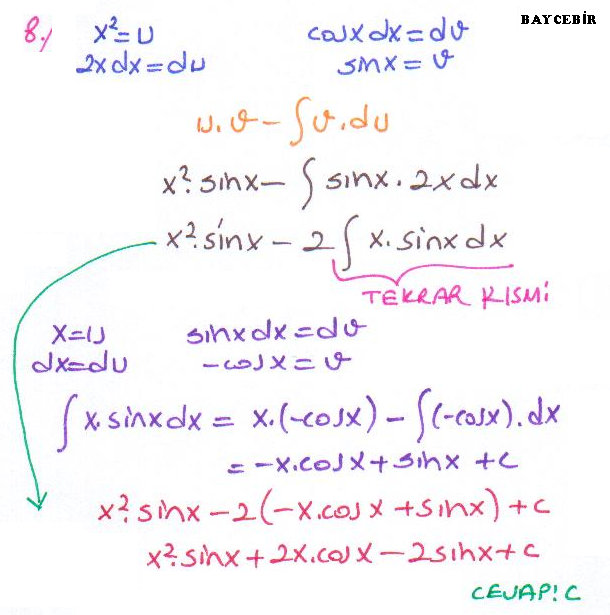 BAYCEBİR
8-) x²=U cosxdx=dv
2xdx=du sinx=v
u.v-∫v.du
x².sinx-∫sinx.2xdx
x².sinx-2∫x.sinxdx
TEKRAR KISMİ
x=U sinxdx=dv
dx=du -cosx=v
∫x.sinxdx=x.(-cosx)-∫(-cosx).dx
=-x.cosx+sinx+c
x².sinx-2(-x.cosx+sinx)+c
x².sinx+2x.cosx-2sinx+c
CEVAP: C